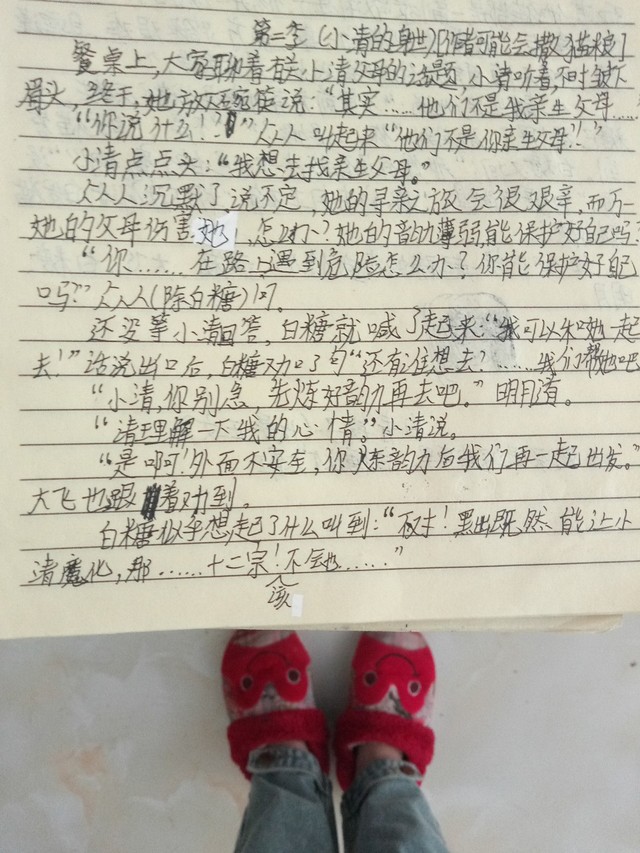 第二季（小清的身世）[作者可能会撒猫粮]
餐桌上，大家聊着有关小清父母的话题，小清听着，不时皱下
眉头，终于，她放下碗筷说：“其实……他们不是我亲生父母……
“你说什么！？”众人叫起来“他们不是你亲生父母？！”
小清点点头：“我想去找亲生父母。”
众人沉默了说不定，她的寻亲之旅会很艰辛，而万一
她的父母伤害她，怎么办？她的韵力薄弱，能保护好自己吗？
“你……在路上遇到危险怎么办？你能保护好自己
吗？”众人（除白糖）问。
还没等小清回答，白糖就喊了起来：“我可以和她一起
去！”话说出口后，白糖又加了句“还有谁想去？……我们帮她吧
“小清，你别急，先炼好韵力再去吧。”明月道。
“请理解一下我的心情。”小清说。
“是啊！外面不安全，你炼韵力后我们再一起出发。”
大飞也跟着劝到。
白糖似乎想起了什么叫到：“不对！黑出既然能让小
清魔化，那……十二宗！不会……”
该